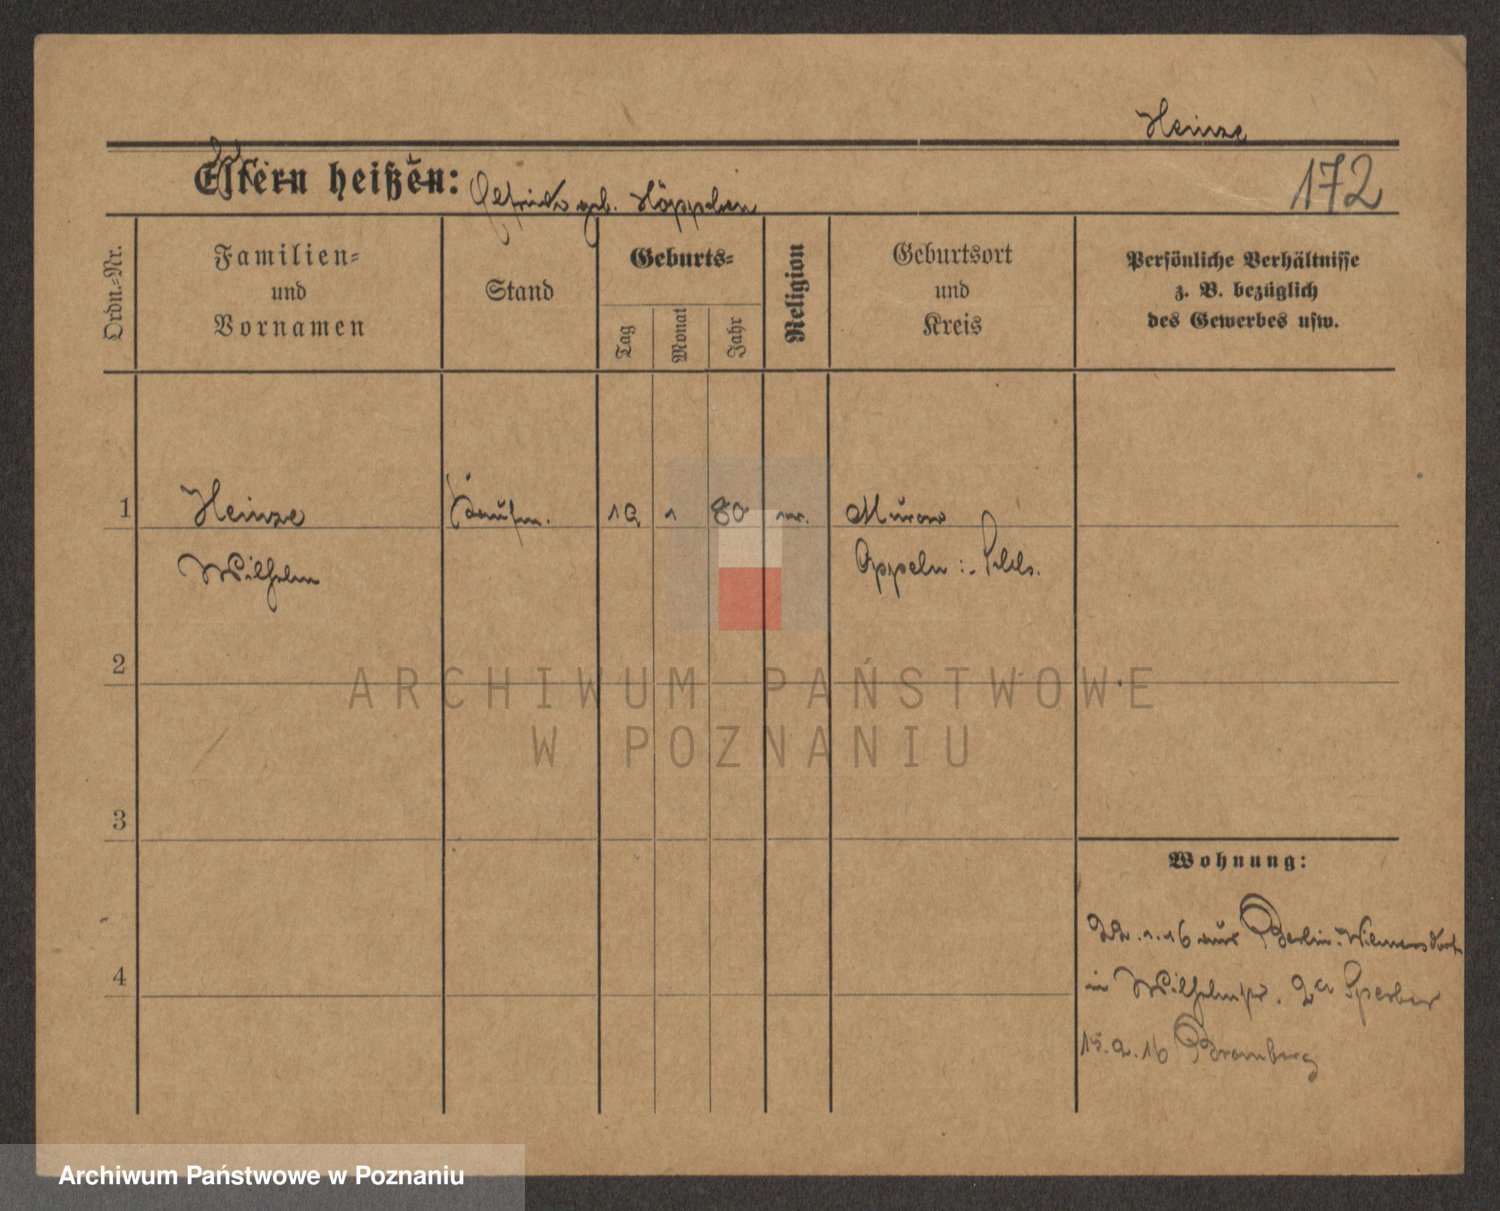 Heinze
172
Eltern heißen:
geb. Köppchen
Ordn.-Nr.
Familien-
und
Vornamen
Stand
Geburts-
Tag
Monat
Jahr
Religion
Geburtsort
und
Kreis
Persönliche Verhältnisse
z. B. bezüglich
des Gewerbes usw.
1
Heinze
Wilhelm
Kaufm.
19
1
80
Murow
Oppeln
2
3
4
Wohnung:
22.1.16 aus Berlin-Wilmersdorf
in Wilhelmstr. Sperber
15.2.16 Bromberg
ARCHIWUM PAŃSTWOWE
W POZNANIU
Archiwum Państwowe w Poznaniu